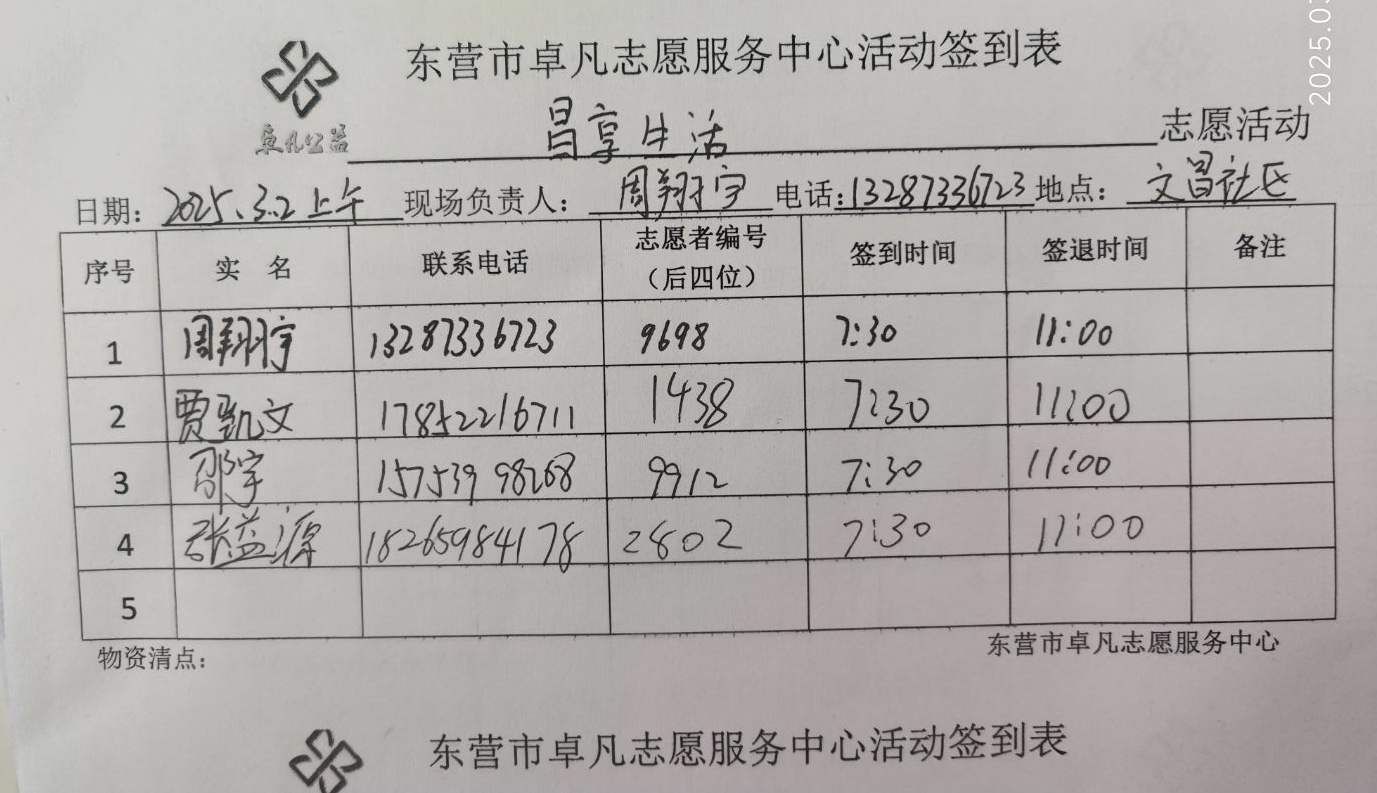 2025.03
东营市卓凡志愿服务中心活动签到表
卓凡公益 昌享生活 志愿活动
日期: 2025.3.2上午 现场负责人: 周翔宇 电话:13287336723 地点: 文昌社区
序号 实 名 联系电话 志愿者编号（后四位） 签到时间 签退时间 备注
1 周翔宇 13287336723 9698 7:30 11:00
2 贾凯文 17852216711 1438 7:30 11:00
3 邵宇 15753998268 9912 7:30 11:00
4 张益源 18265984178 2802 7:30 11:00
5
物资清点: 东营市卓凡志愿服务中心
东营市卓凡志愿服务中心活动签到表